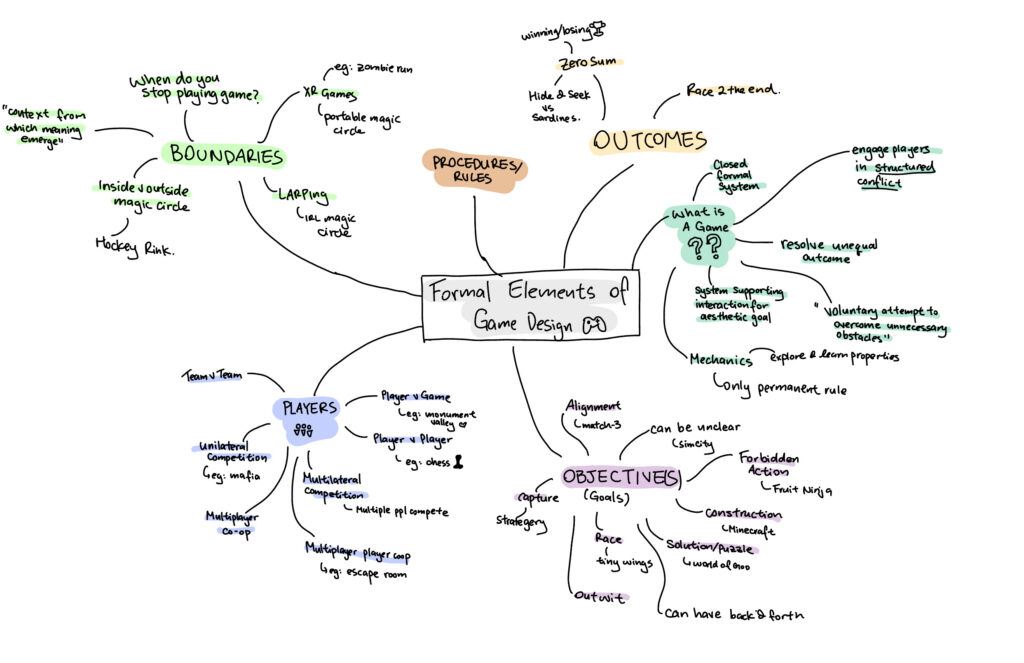 winning/losing
Zero Sum
Hide & Seek
vs
Sardines.
Race 2 the end.
OUTCOMES
When do you
stop playing game?
eg: zombie run
XR Games
portable magic
circle
"context from
which meaning
emerge"
BOUNDARIES
Inside v outside
magic circle
Hockey Rink.
LARPing
IRL magic
circle
PROCEDURES/
RULES
Closed
formal
system
engage players
in structured
conflict
What is
A Game
??
resolve unequal
outcome
System supporting
interaction for
aesthetic goal
"voluntary attempt to
overcome unnecessary
obstacles"
Mechanics
explore & learn properties
only permanent rule
Formal Elements of
Game Design
Team v Team
PLAYERS
Player v Game
eg: monument
valley
Player v Player
eg: chess
Unilateral
Competition
eg: mafia
Multilateral
Competition
Multiple ppl compete
Multiplayer
Co-op
Multiplayer player coop
eg: escape room
Alignment
match-3
can be unclear
simcity
OBJECTIVE(S)
(Goals)
Forbidden
Action
Fruit Ninja
capture
strategery
construction
Minecraft
Race
tiny wings
Solution/puzzle
world of goo
Outwit
can have back & forth